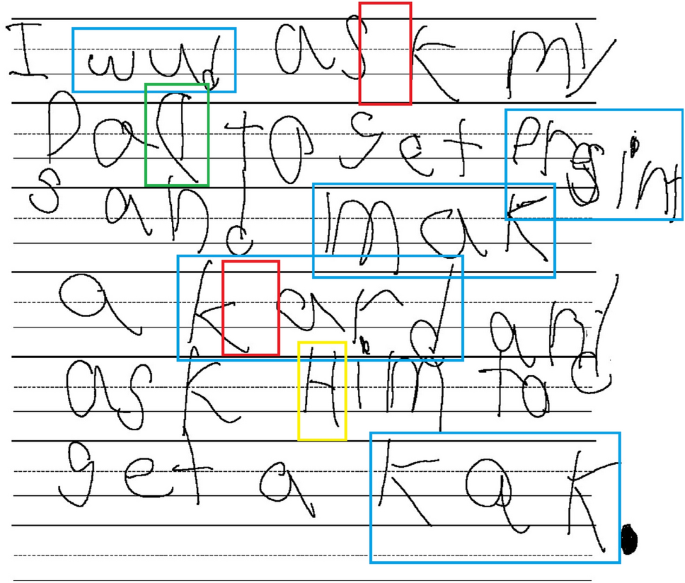 I wud ask my
Daq to get engin
s and mak
a kard and
ask Him to
get a kak.